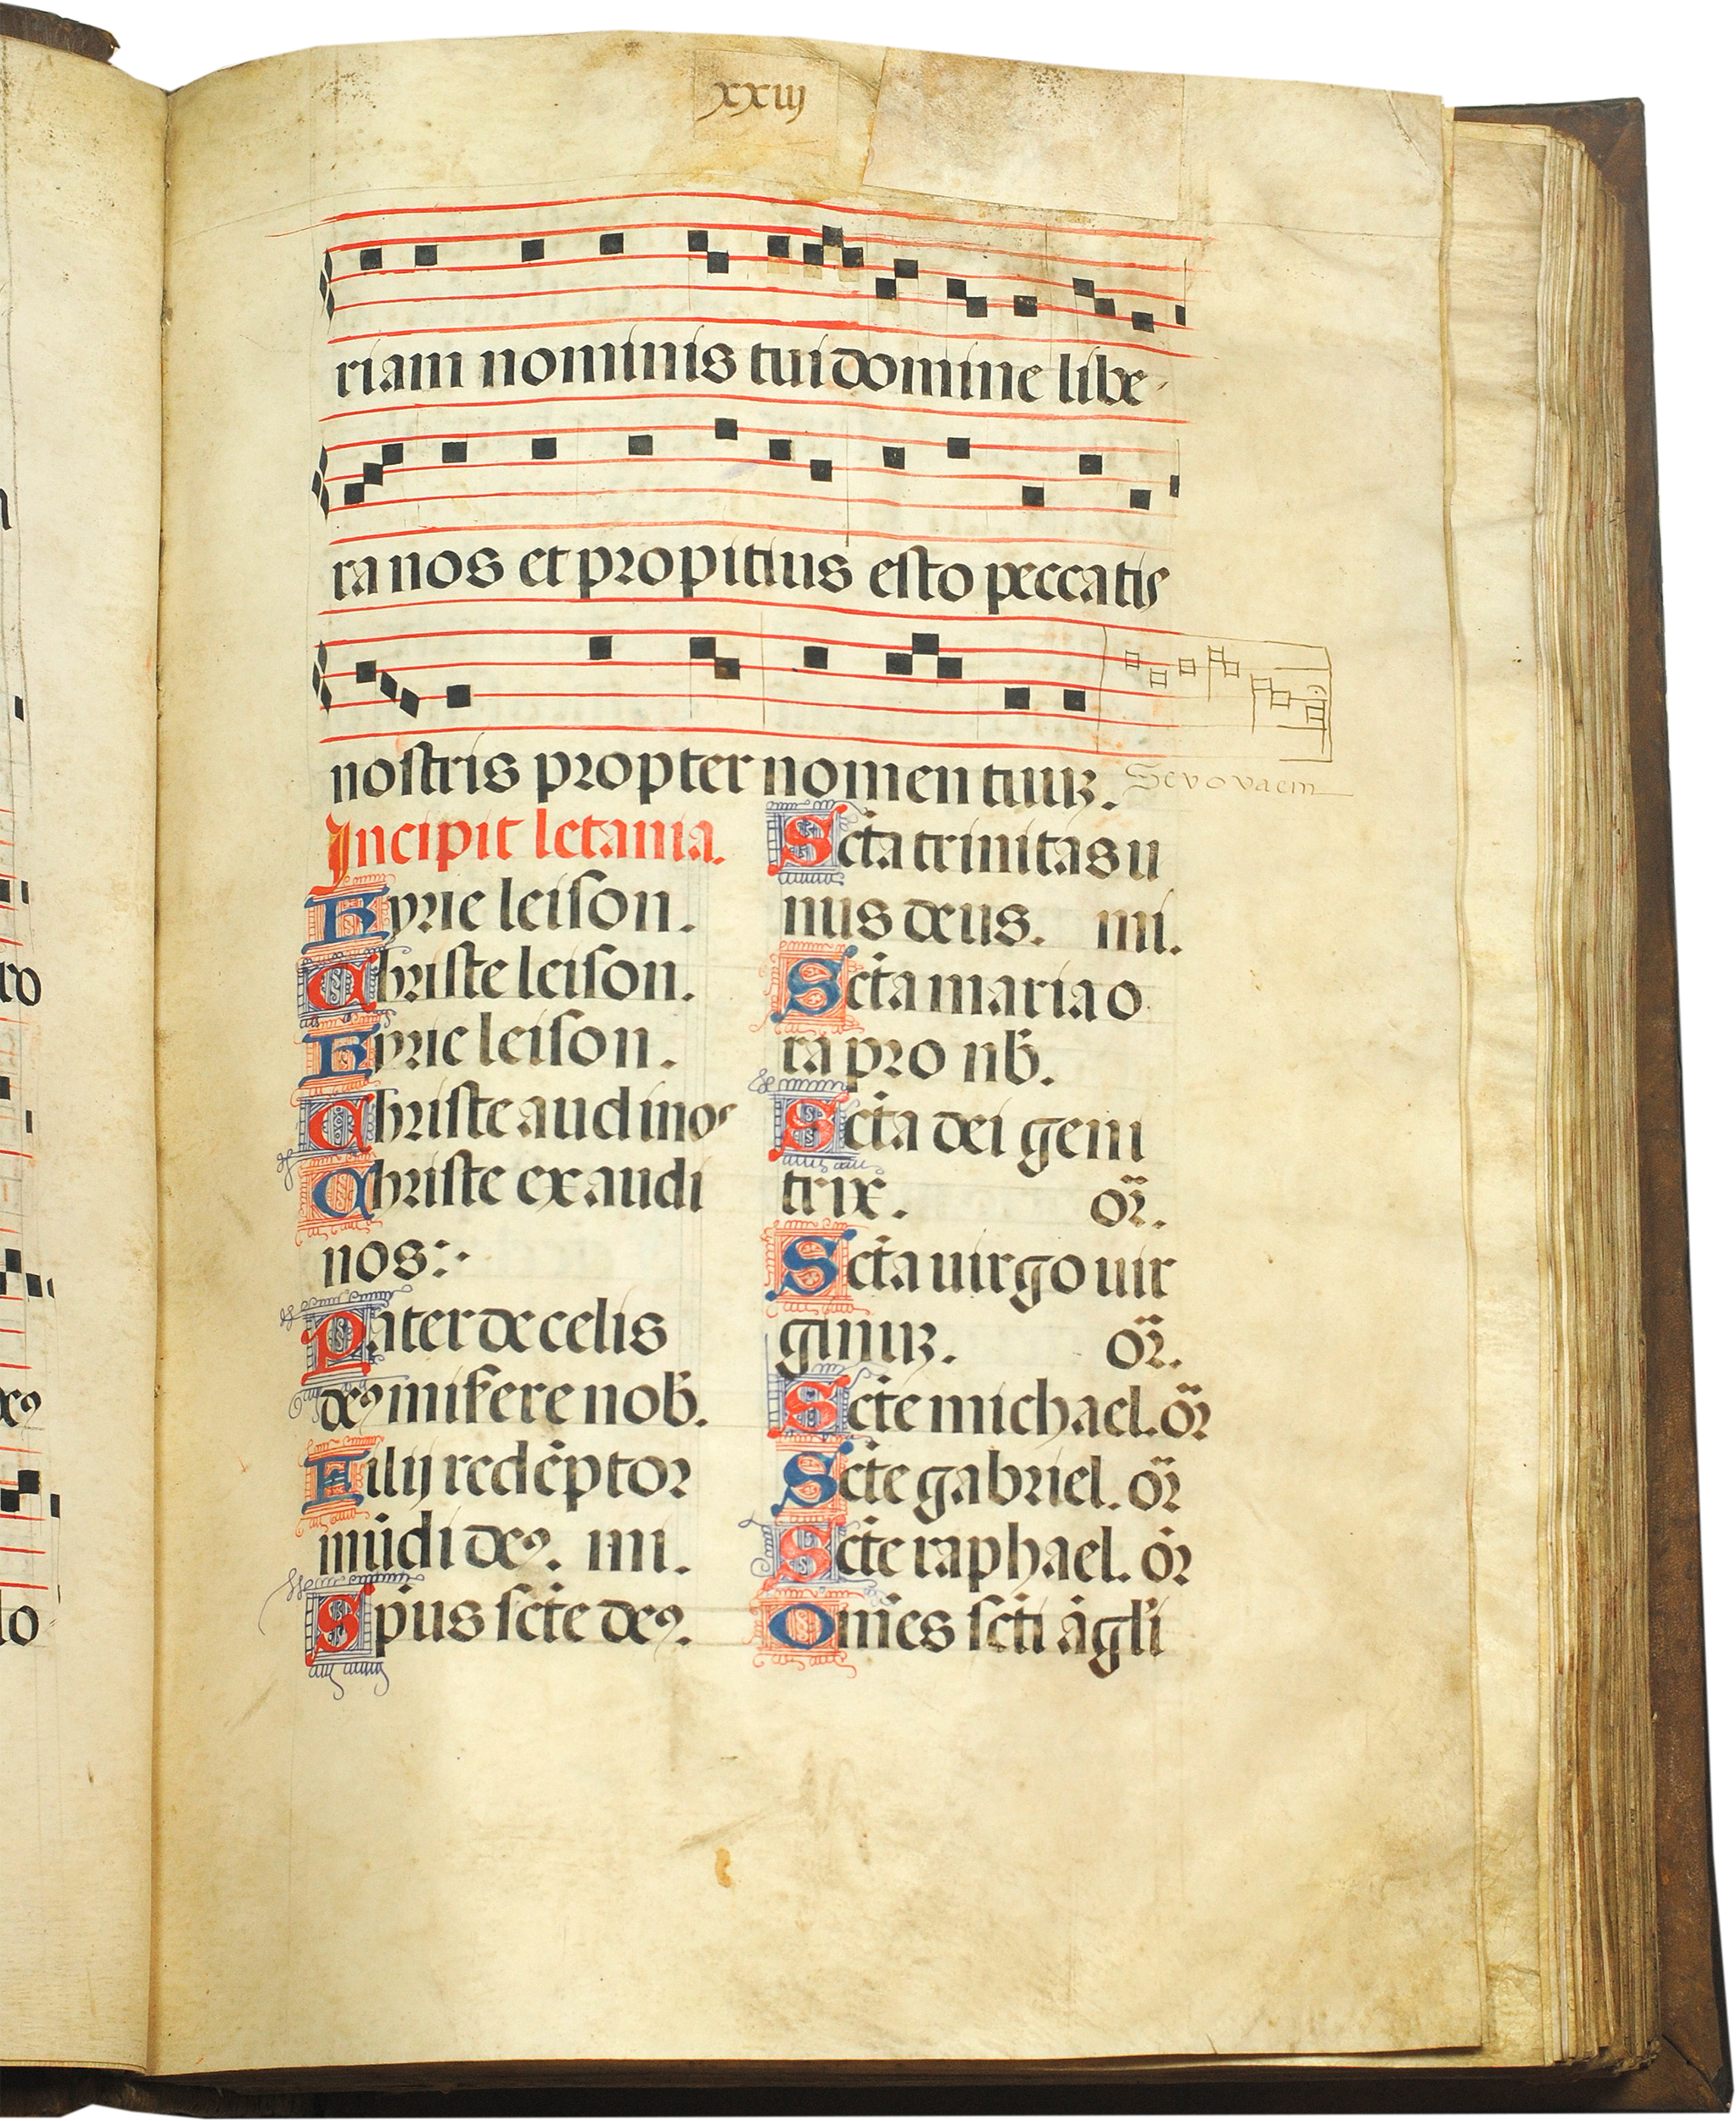 xxiij
riam nominis tui domine libe-
ra nos et propitius esto peccatis
nostris propter nomen tuuꝫ.
Sevovaem
Incipit letania.
Kyrie leison.
Christe leison.
Kyrie leison.
Christe audi nos
Christe exaudi
nos:·
Pater de celis
deꝰ misere nob̄.
Filij redēptor
mūdi deꝰ. mi.
Sp̄us sc̄te deꝰ.
Sc̄ta trinitas u
nus deus. mi.
Sc̄ta maria o
ra pro nb̄.
Sc̄ta dei geni
trix. or̄.
Sc̄ta uirgo uir
ginuꝫ. or̄.
Sc̄te michael. or̄
Sc̄te gabriel. or̄
Sc̄te raphael. or̄
Om̄es sc̄ti āgl̄i
xo
xꝰ
lo